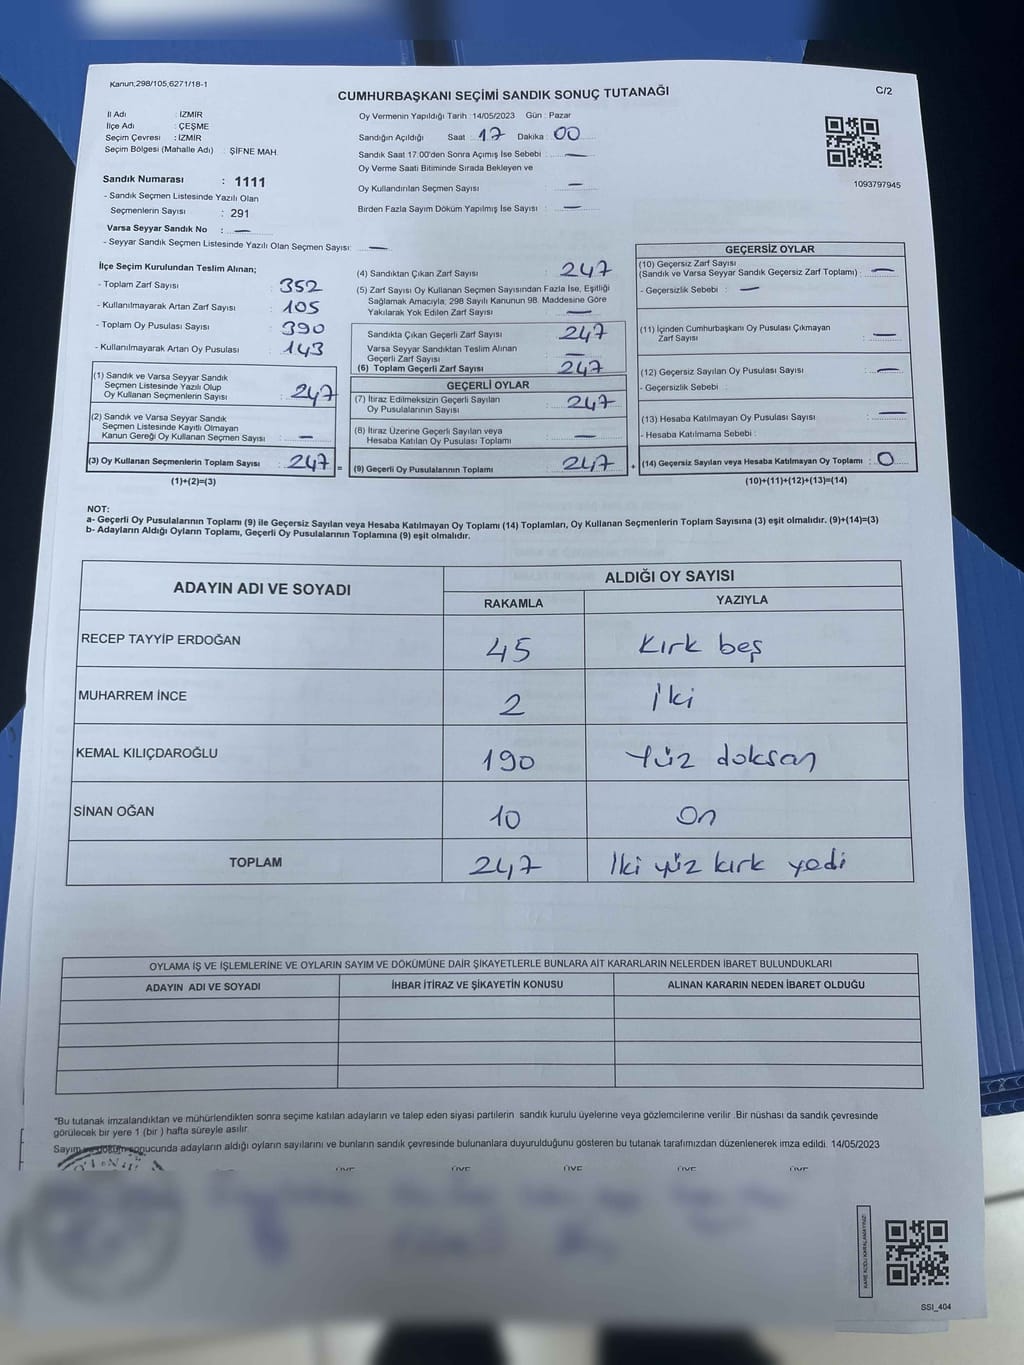 Kanun;298/105,6271/18-1
CUMHURBAŞKANI SEÇİMİ SANDIK SONUÇ TUTANAĞI
C/2
İl Adı : İZMİR
İlçe Adı : ÇEŞME
Seçim Çevresi : İZMİR
Seçim Bölgesi (Mahalle Adı) : ŞİFNE MAH.
Oy Vermenin Yapıldığı Tarih :14/05/2023 Gün : Pazar
Sandığın Açıldığı Saat : 17 Dakika : 00
Sandık Saat 17:00'den Sonra Açımış İse Sebebi : —
Oy Verme Saati Bitiminde Sırada Bekleyen ve
Oy Kullandırılan Seçmen Sayısı : —
Birden Fazla Sayım Döküm Yapılmış İse Sayısı : —
1093797945
Sandık Numarası : 1111
- Sandık Seçmen Listesinde Yazılı Olan
Seçmenlerin Sayısı : 291
Varsa Seyyar Sandık No : —
- Seyyar Sandık Seçmen Listesinde Yazılı Olan Seçmen Sayısı: —
İlçe Seçim Kurulundan Teslim Alınan;
- Toplam Zarf Sayısı : 352
- Kullanılmayarak Artan Zarf Sayısı : 105
- Toplam Oy Pusulası Sayısı : 390
- Kullanılmayarak Artan Oy Pusulası : 143
(1) Sandık ve Varsa Seyyar Sandık
Seçmen Listesinde Yazılı Olup
Oy Kullanan Seçmenlerin Sayısı : 247
(2) Sandık ve Varsa Seyyar Sandık
Seçmen Listesinde Kayıtlı Olmayan
Kanun Gereği Oy Kullanan Seçmen Sayısı : —
(3) Oy Kullanan Seçmenlerin Toplam Sayısı : 247 =
(1)+(2)=(3)
(4) Sandıktan Çıkan Zarf Sayısı : 247
(5) Zarf Sayısı Oy Kullanan Seçmen Sayısından Fazla İse, Eşitliği
Sağlamak Amacıyla, 298 Sayılı Kanunun 98. Maddesine Göre
Yakılarak Yok Edilen Zarf Sayısı : —
Sandıkta Çıkan Geçerli Zarf Sayısı : 247
Varsa Seyyar Sandıktan Teslim Alınan
Geçerli Zarf Sayısı : —
(6) Toplam Geçerli Zarf Sayısı : 247
GEÇERLİ OYLAR
(7) İtiraz Edilmeksizin Geçerli Sayılan
Oy Pusulalarının Sayısı : 247
(8) İtiraz Üzerine Geçerli Sayılan veya
Hesaba Katılan Oy Pusulası Toplamı : —
(9) Geçerli Oy Pusulalarının Toplamı : 247 +
GEÇERSİZ OYLAR
(10) Geçersiz Zarf Sayısı
(Sandık ve Varsa Seyyar Sandık Geçersiz Zarf Toplamı) : —
- Geçersizlik Sebebi : —
(11) İçinden Cumhurbaşkanı Oy Pusulası Çıkmayan
Zarf Sayısı : —
(12) Geçersiz Sayılan Oy Pusulası Sayısı : —
- Geçersizlik Sebebi :
(13) Hesaba Katılmayan Oy Pusulası Sayısı : —
- Hesaba Katılmama Sebebi :
(14) Geçersiz Sayılan veya Hesaba Katılmayan Oy Toplamı : 0
(10)+(11)+(12)+(13)=(14)
NOT:
a- Geçerli Oy Pusulalarının Toplamı (9) ile Geçersiz Sayılan veya Hesaba Katılmayan Oy Toplamı (14) Toplamları, Oy Kullanan Seçmenlerin Toplam Sayısına (3) eşit olmalıdır. (9)+(14)=(3)
b- Adayların Aldığı Oyların Toplamı, Geçerli Oy Pusulalarının Toplamına (9) eşit olmalıdır.
ADAYIN ADI VE SOYADI
ALDIĞI OY SAYISI
RAKAMLA YAZIYLA
RECEP TAYYİP ERDOĞAN 45 Kırk beş
MUHARREM İNCE 2 İki
KEMAL KILIÇDAROĞLU 190 Yüz doksan
SİNAN OĞAN 10 On
TOPLAM 247 İki yüz kırk yedi
OYLAMA İŞ VE İŞLEMLERİNE VE OYLARIN SAYIM VE DÖKÜMÜNE DAİR ŞİKAYETLERLE BUNLARA AİT KARARLARIN NELERDEN İBARET BULUNDUKLARI
ADAYIN ADI VE SOYADI İHBAR İTİRAZ VE ŞİKAYETİN KONUSU ALINAN KARARIN NEDEN İBARET OLDUĞU
"Bu tutanak imzalandıktan ve mühürlendikten sonra seçime katılan adayların ve talep eden siyasi partilerin sandık kurulu üyelerine veya gözlemcilerine verilir .Bir nüshası da sandık çevresinde
görülecek bir yere 1 (bir ) hafta süreyle asılır.
Sayım ve döküm sonucunda adayların aldığı oyların sayılarını ve bunların sandık çevresinde bulunanlara duyurulduğunu gösteren bu tutanak tarafımızdan düzenlenerek imza edildi. 14/05/2023
ÜYE ÜYE ÜYE ÜYE ÜYE
KARE KODU KARALAMAYINIZ!
SSI_404